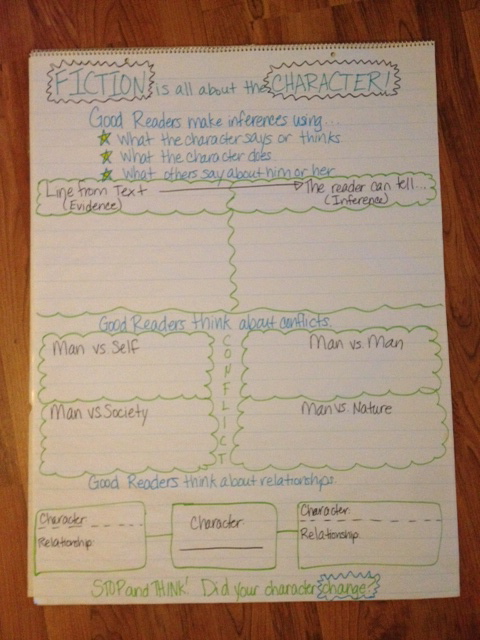 FICTION is all about the CHARACTER!
Good Readers make inferences using...
What the character says or thinks
What the character does
What others say about him or her
Line from Text
(Evidence)
The reader can tell...
(Inference)
Good Readers think about conflicts.
Man vs. Self
Man vs. Man
CONFLICT
Man vs Society
Man vs. Nature
Good Readers think about relationships.
Character
Relationship:
Character
Character:
Relationship:
STOP and THINK! Did your character change?